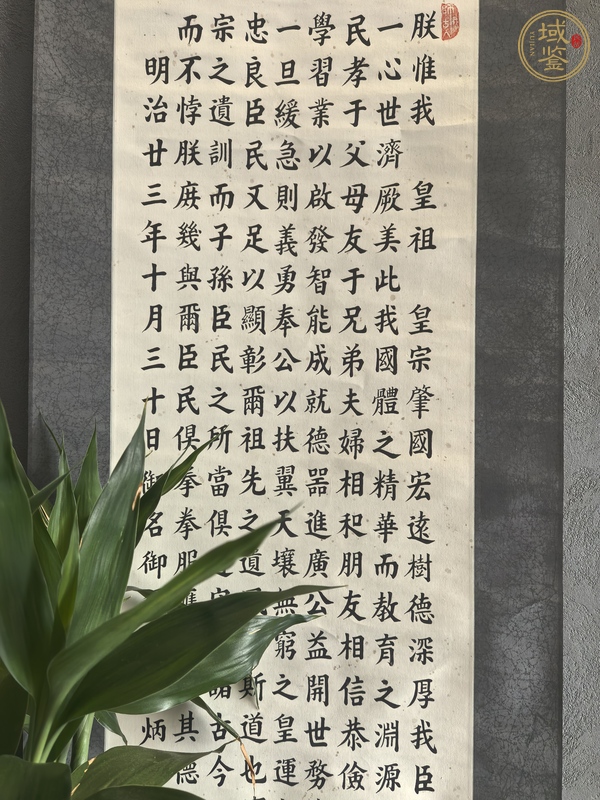 朕惟我 皇祖 皇宗肇國宏遠樹德深厚我臣
一心世濟厥美此我國體之精華而敎育之淵源
民孝于父母友于兄弟夫婦相和朋友相信恭儉
學習業以啟發智能成就德器進廣公益開世務
一旦緩急則義勇奉公以扶翼天壤無窮之皇運
忠良臣民又足以顯彰爾祖先之遺 斯道也
宗之遺訓而子孫臣民之所當俱 諸古今
而不悖朕庶幾與爾臣民俱拳拳服 其德
明治廿三年十月三十日御名御 炳
域鑒
YUJIAN